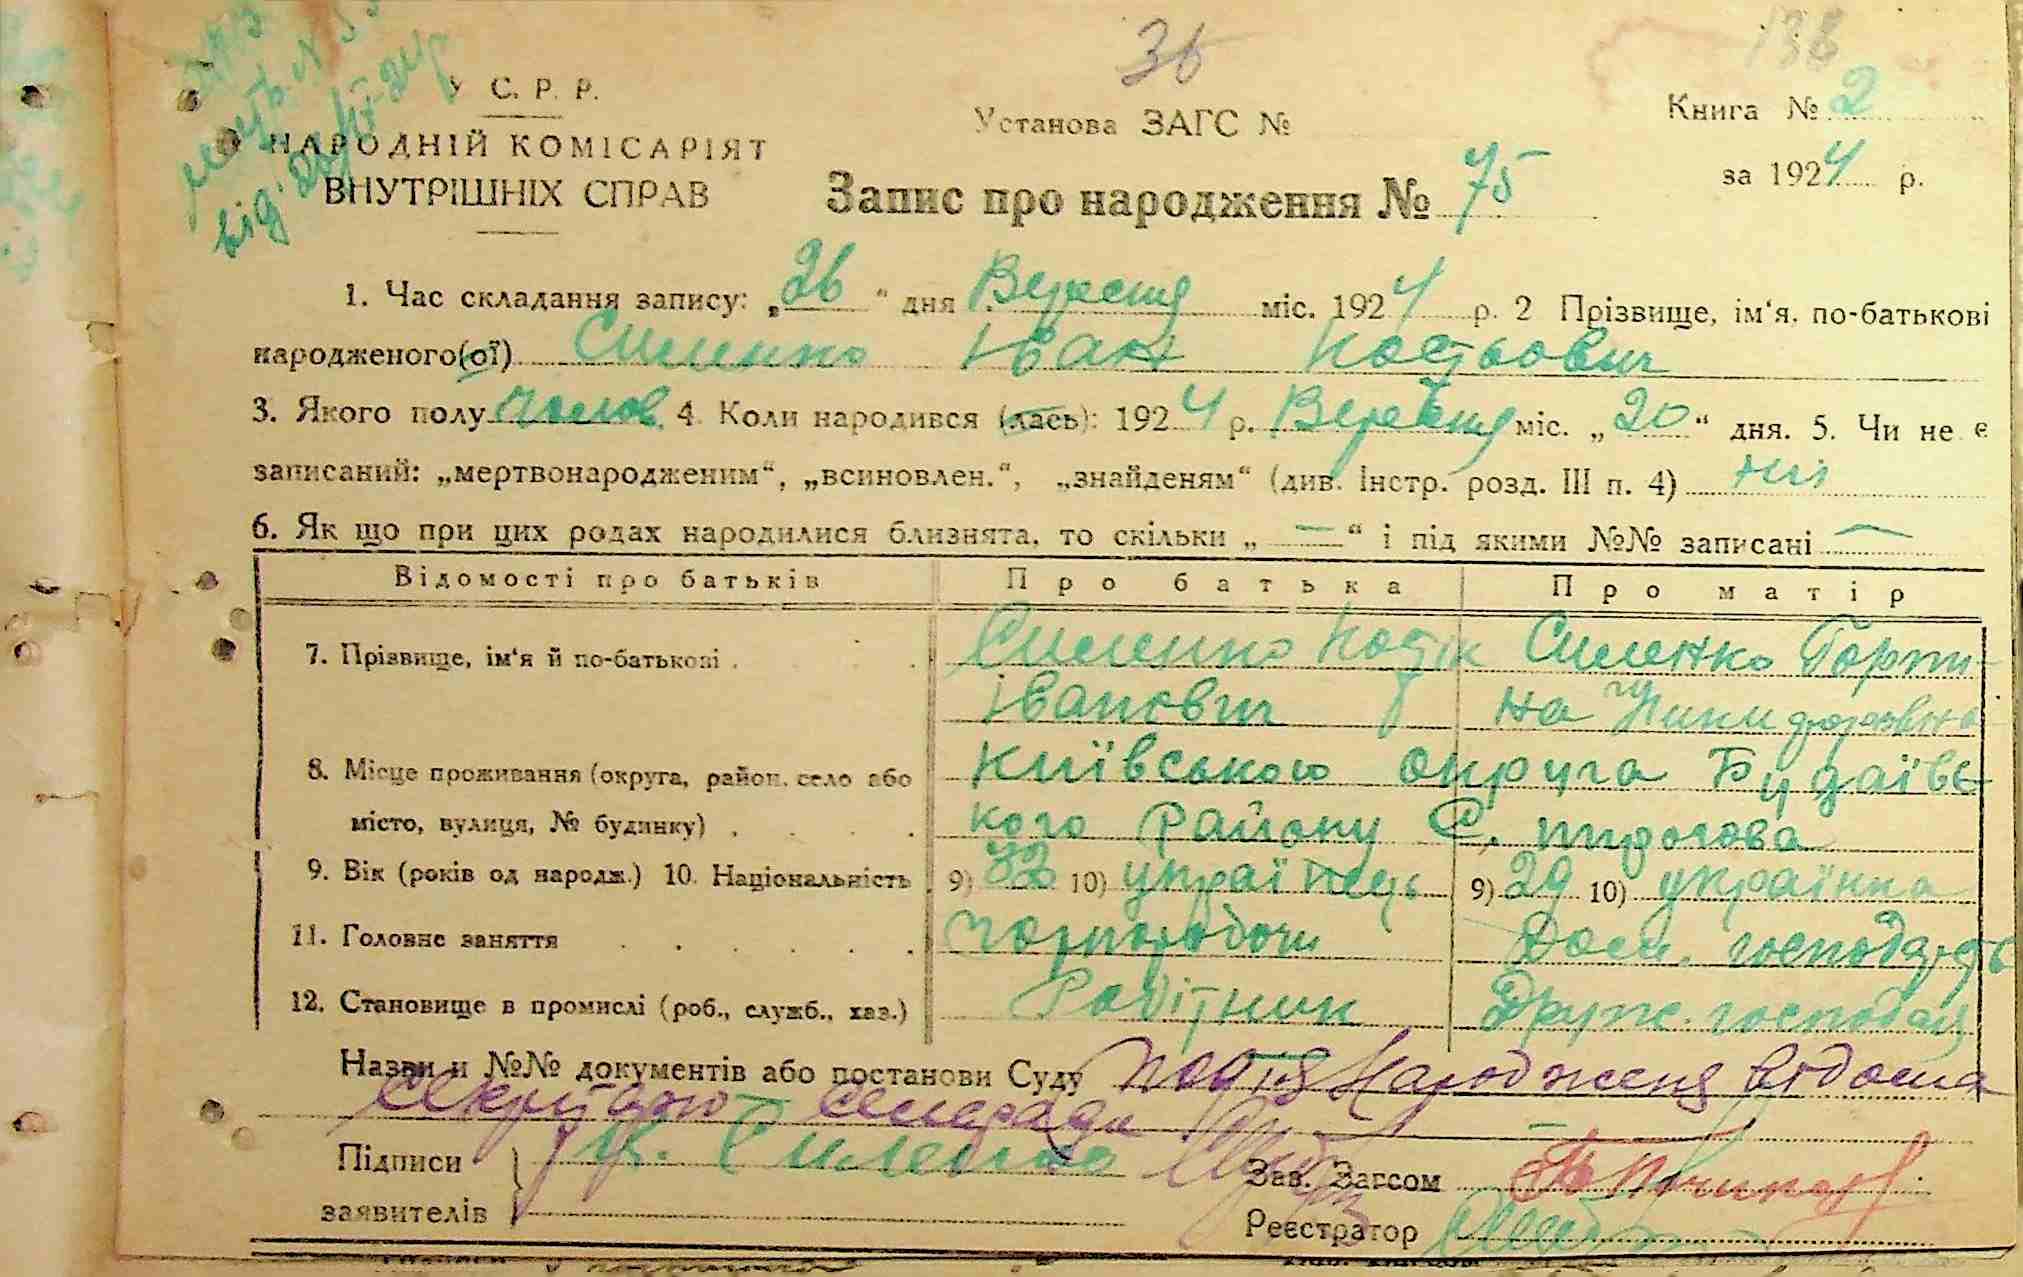 36
136
У С. Р. Р.
НАРОДНІЙ КОМІСАРІЯТ
ВНУТРІШНІХ СПРАВ
Установа ЗАГС №
Книга № 2
за 1924 р.
Запис про народження № 75
1. Час складання запису: „26“ дня Вересня міс. 1924 р. 2 Прізвище, ім'я, по-батькові
народженого(ої) Силенко Іван Костьович
3. Якого полу чолов. 4. Коли народився (лась): 1924 р. Вересня міс. „20“ дня. 5. Чи не є
записаний: „мертвонародженим“, „всиновлен.“, „знайденям“ (див. Інстр. розд. III п. 4) ні
6. Як що при цих родах народилися близнята, то скільки „—“ і під якими №№ записані —
Відомості про батьків Про батька Про матір
7. Прізвище, ім'я й по-батькові Силенко Кость Силенко Горпи-
Іванович на Никифоровна
8. Місце проживання (округа, район, село або Київського округа Будаївс-
місто, вулиця, № будинку) кого Району С. пирогова
9. Вік (років од народж.) 10. Національність 9) 32 10) українець 9) 29 10) українка
11. Головне заняття Чорноробочи Дом. господарсть
12. Становище в промислі (роб., служб., хаз.) Робітник Друж. господар
Назви и №№ документів або постанови Суду Подія Народженя відома
секритарю сельради
Підписи К. Силенко Зав. Загсом
заявителів Реєстратор